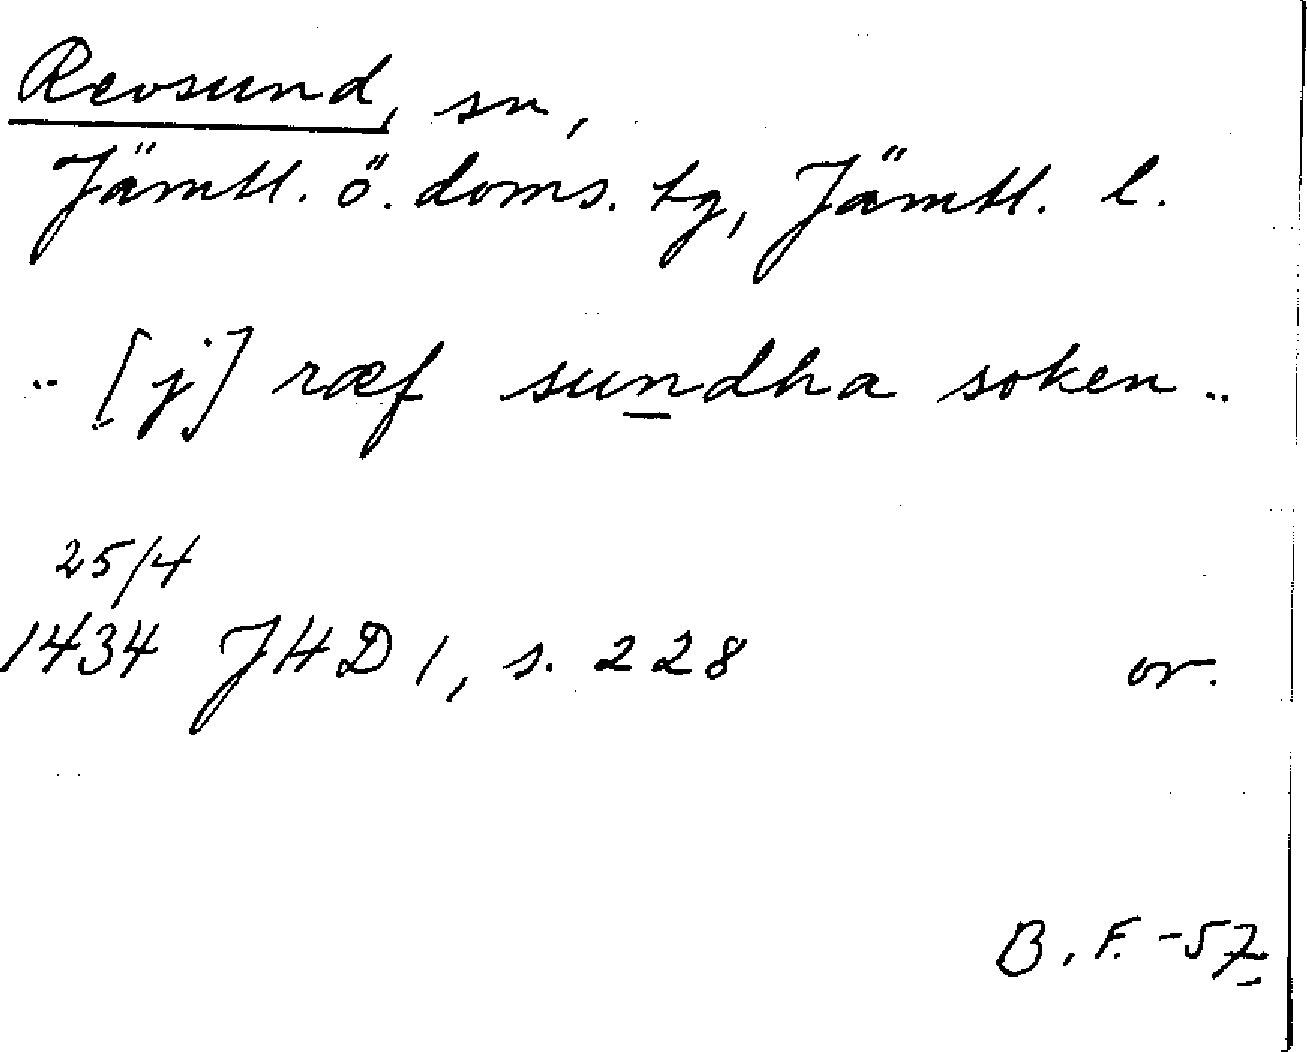 Revsund, sn,
Jämtl. ö. doms. tg, Jämtl. l.
.. [j] ræf sundha soken ..
25/4
1434 JHD 1, s. 228 or.
B. F. -57